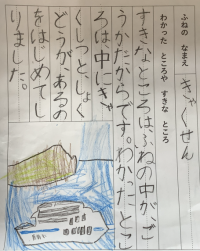 ふねの なまえ
きゃくせん
わかった ところや すきな ところ
すきなところは、ふねの中がご
うかだからです。わかったとこ
ろは、中にきゃ
くしつと、しょく
どうが、あるの
をはじめてし
りました。